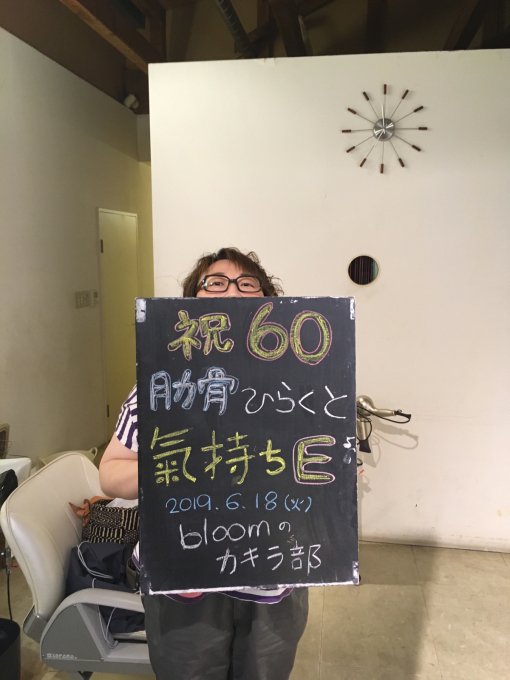 祝60
肋骨ひらくと
氣持ちE
2019.6.18(火)
bloomの
カキラ部